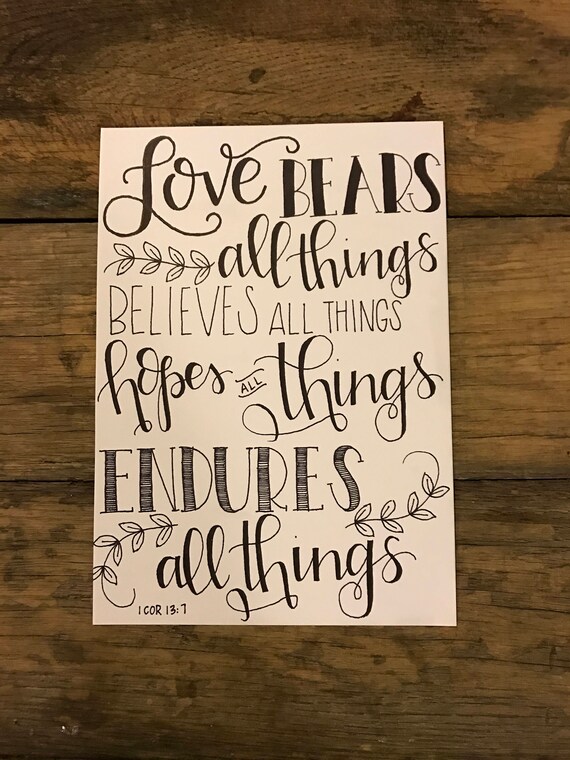 Love BEARS
all things
BELIEVES ALL THINGS
hopes ALL things
ENDURES
all things
1 COR 13:7